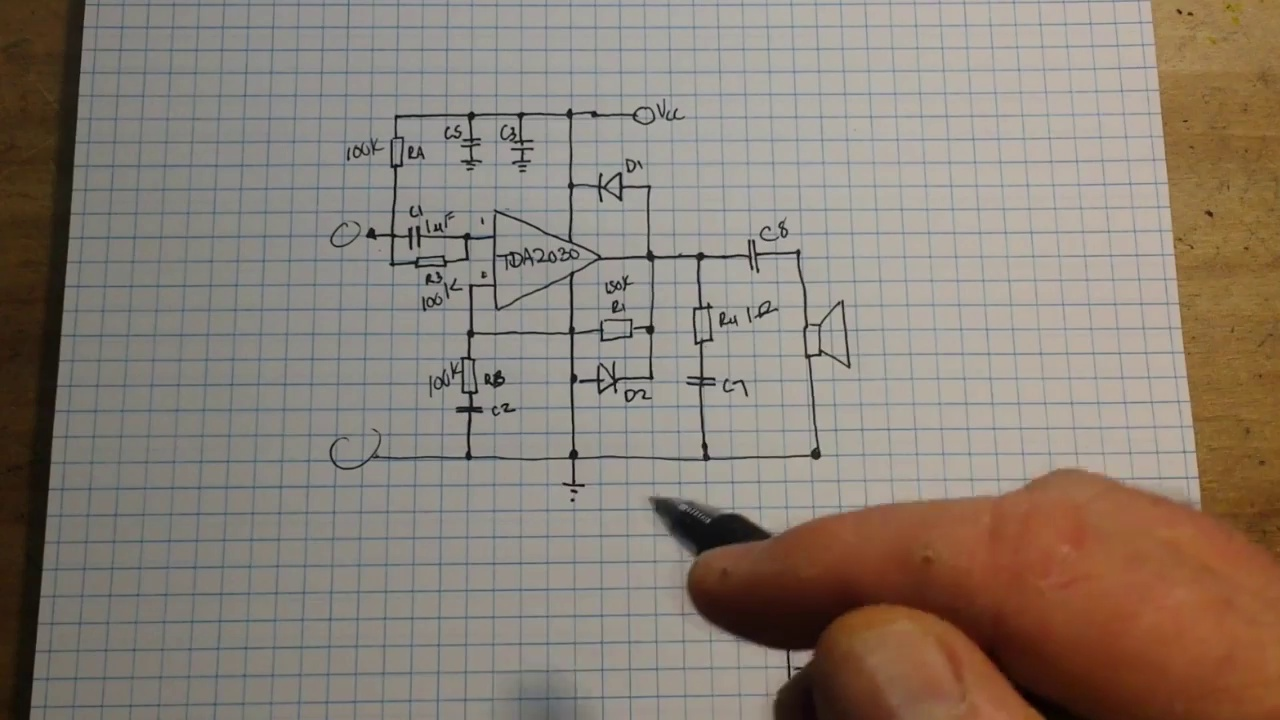 Vcc
100K
RA
C5
C3
D1
C1
1µF
1
TDA2030
C8
R3
100K
2
150K
R1
R4 1Ω
100K
RB
C2
D2
C7